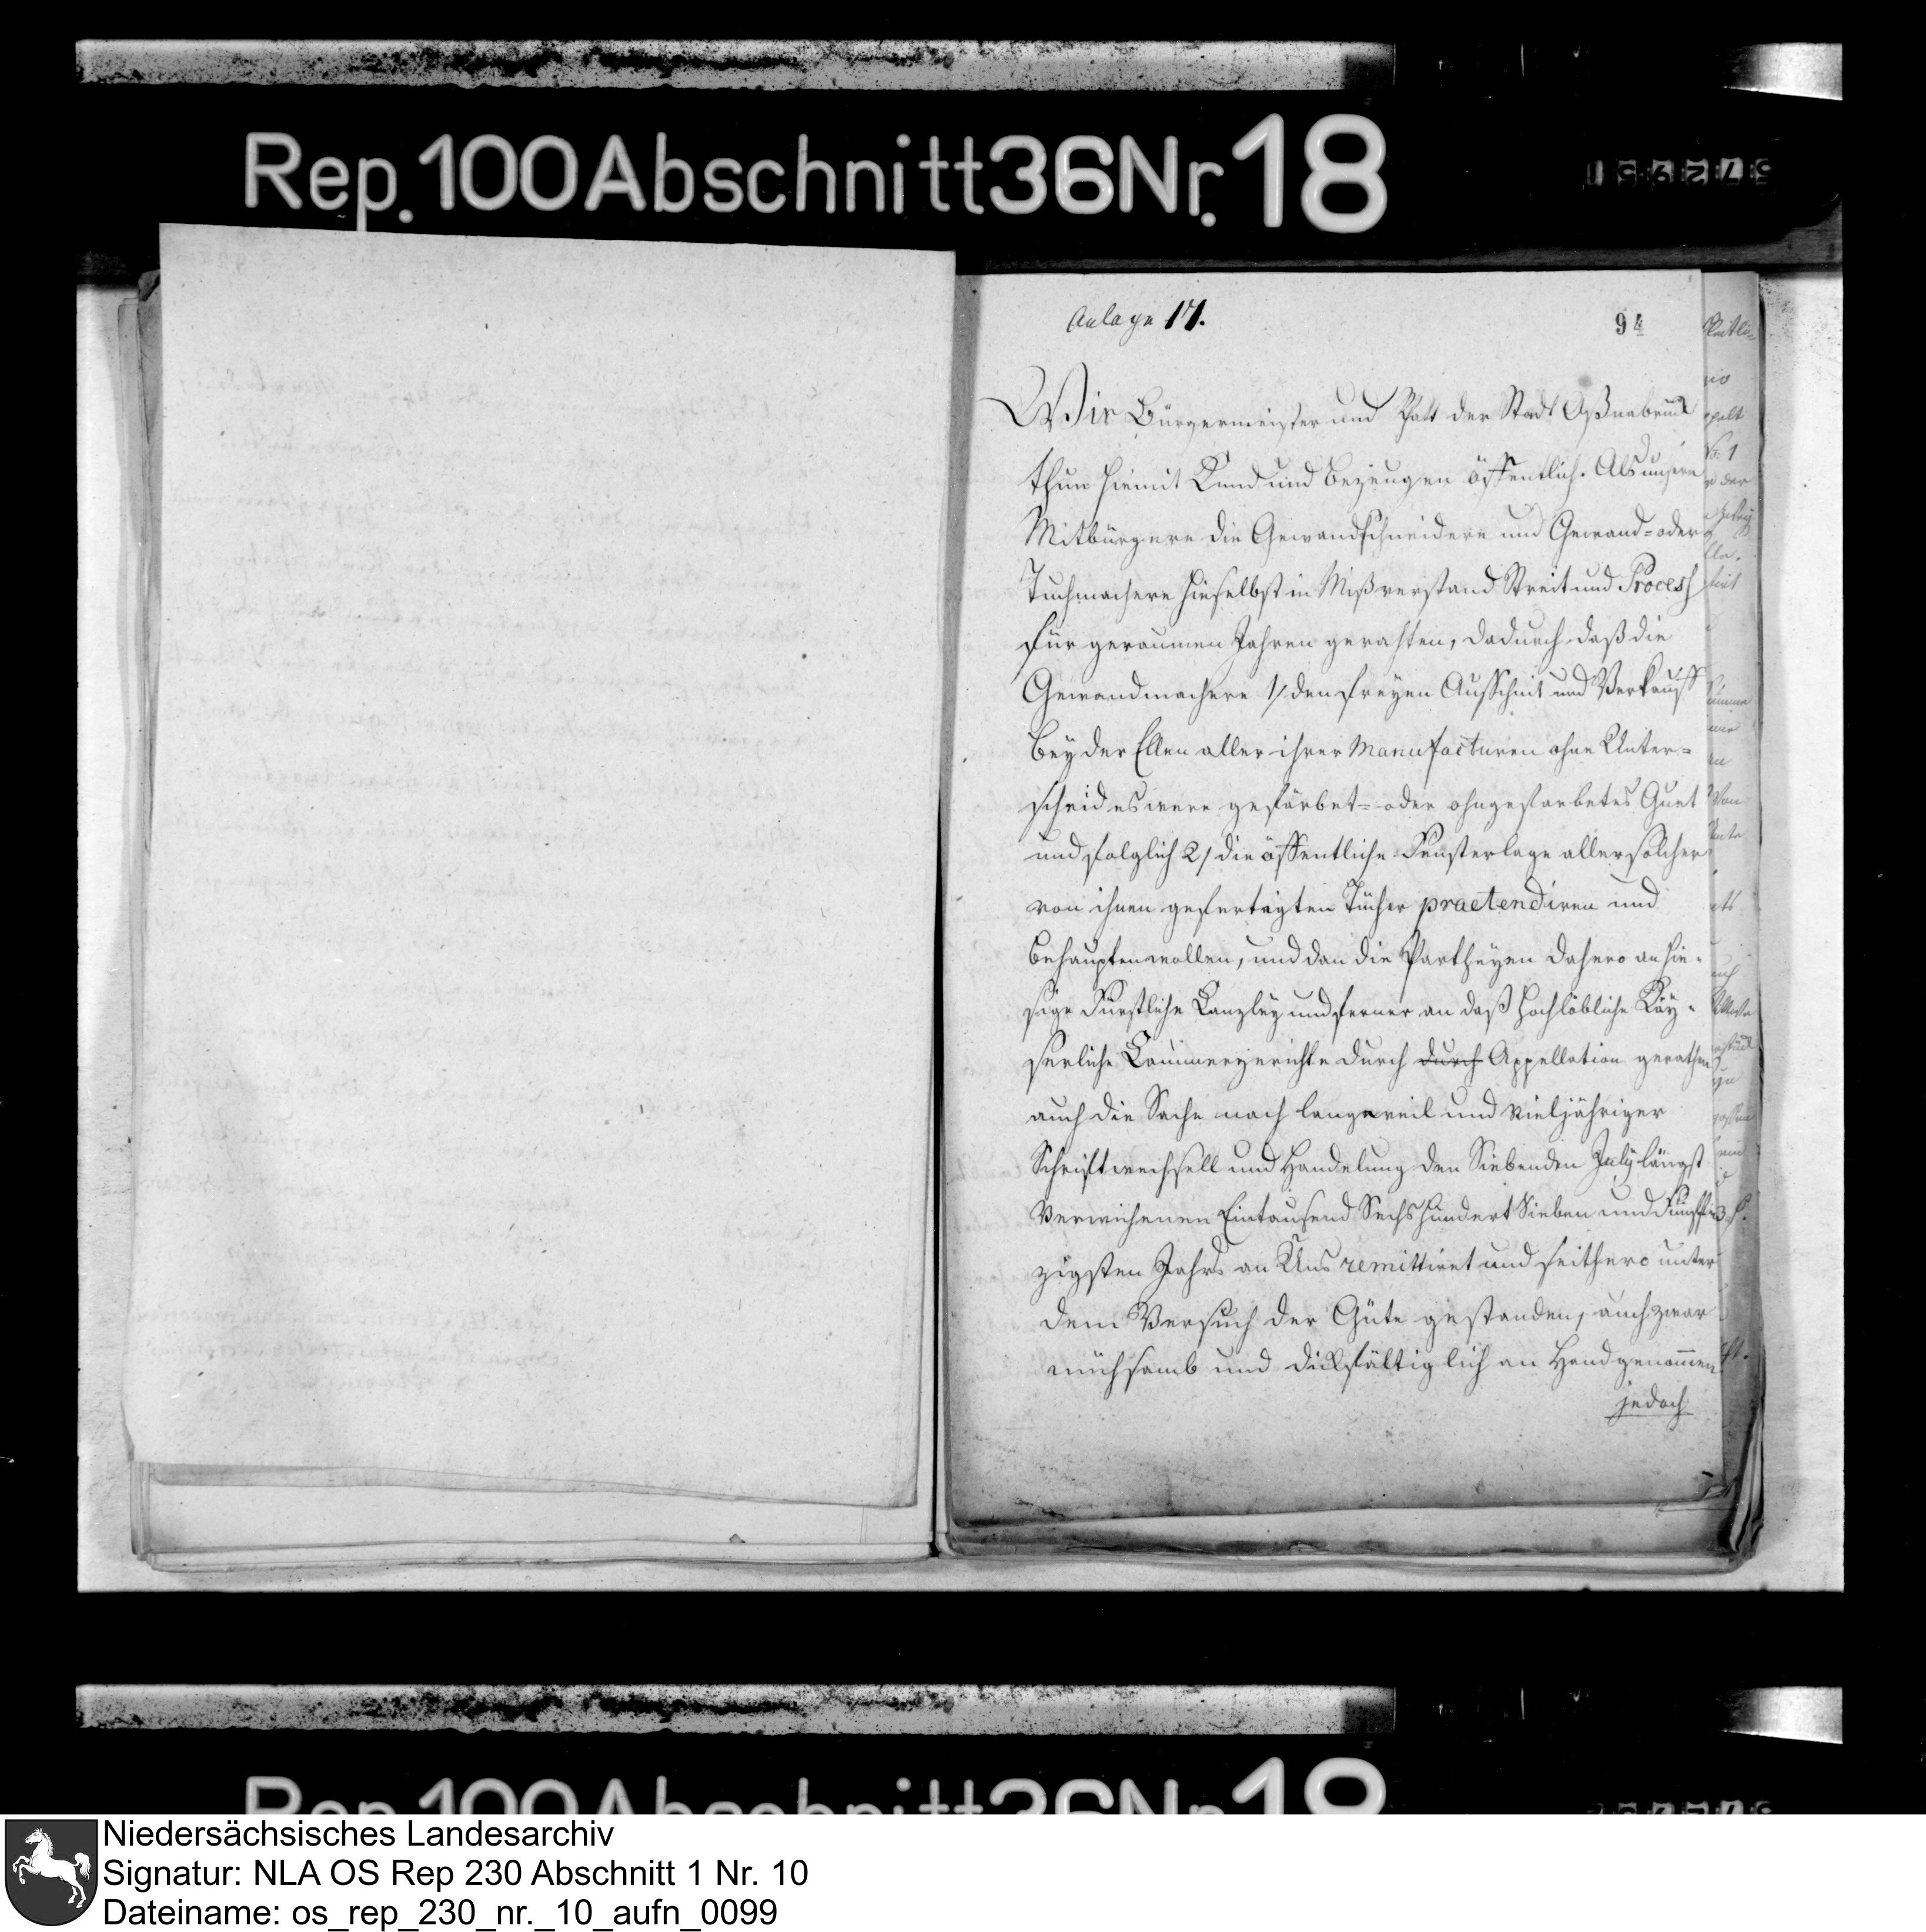 Rep. 100 Abschnitt 36 Nr. 18
Anlage 17.
94
Wir Bürgermeister und Raht der Stadt Oßnabrück
thun hiemit Kund und bezeugen öffentlich. Als unsere
Mitbürgere die Gewandschneidere und Gewand- oder
Tuchmachere hieselbst in Mißverstand Streit und Process
für geraumen Jahren gerahten, dadurch daß die
Gewandmachere 1/ den freyen Außschnit und Verkauff
bey der Ellen aller ihrer Manufacturen ohne Unter-
scheid es were gefärbet- oder ohngefarbetes Guet
und folglich 2/ die öffentliche Fensterlage aller solcher
von ihnen gefertigten Tücher praetendiren und
behaupten wollen, und dan die Partheyen dahero an hie-
sige Fürstliche Canzley und ferner an daß Hochlöbliche Kay-
serliche Cammergerichte durch durch Appellation gerathen
auch die Sache nach langeweil und vieljähriger
Schriftwechsell und Handelung den Siebenden July längst
verwichenen Eintausend Sechshundert Sieben und Funff-
zigsten Jahrs an Uns remittiret und seithero unter
dem Versuch der Güte gestanden, auch zwar
mühsamb und dickfältiglich an Hand genommen
jedoch
Niedersächsisches Landesarchiv
Signatur: NLA OS Rep 230 Abschnitt 1 Nr. 10
Dateiname: os_rep_230_nr._10_aufn_0099